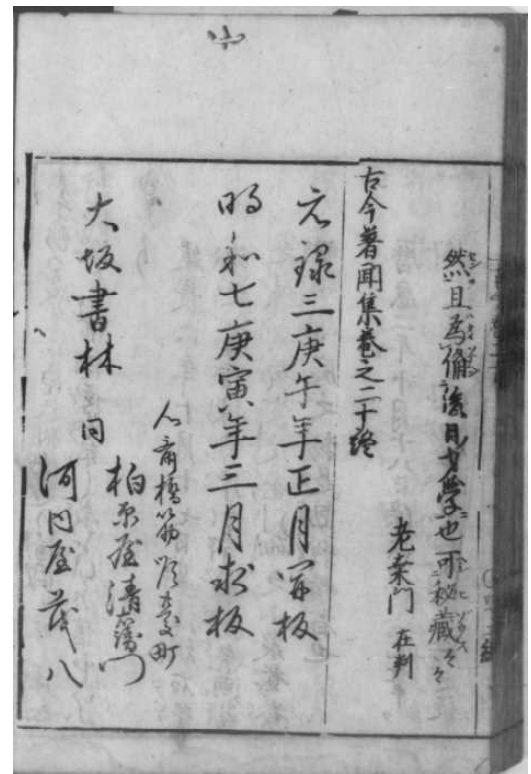 然且為備後見少々學也可秘藏々々
老葉門 在判
古今著聞集卷之二十終
元禄三庚午年正月開板
明和七庚寅年三月求板
心斎橋筋順慶町
大坂書林 柏原屋清右衛門
同 河内屋茂八